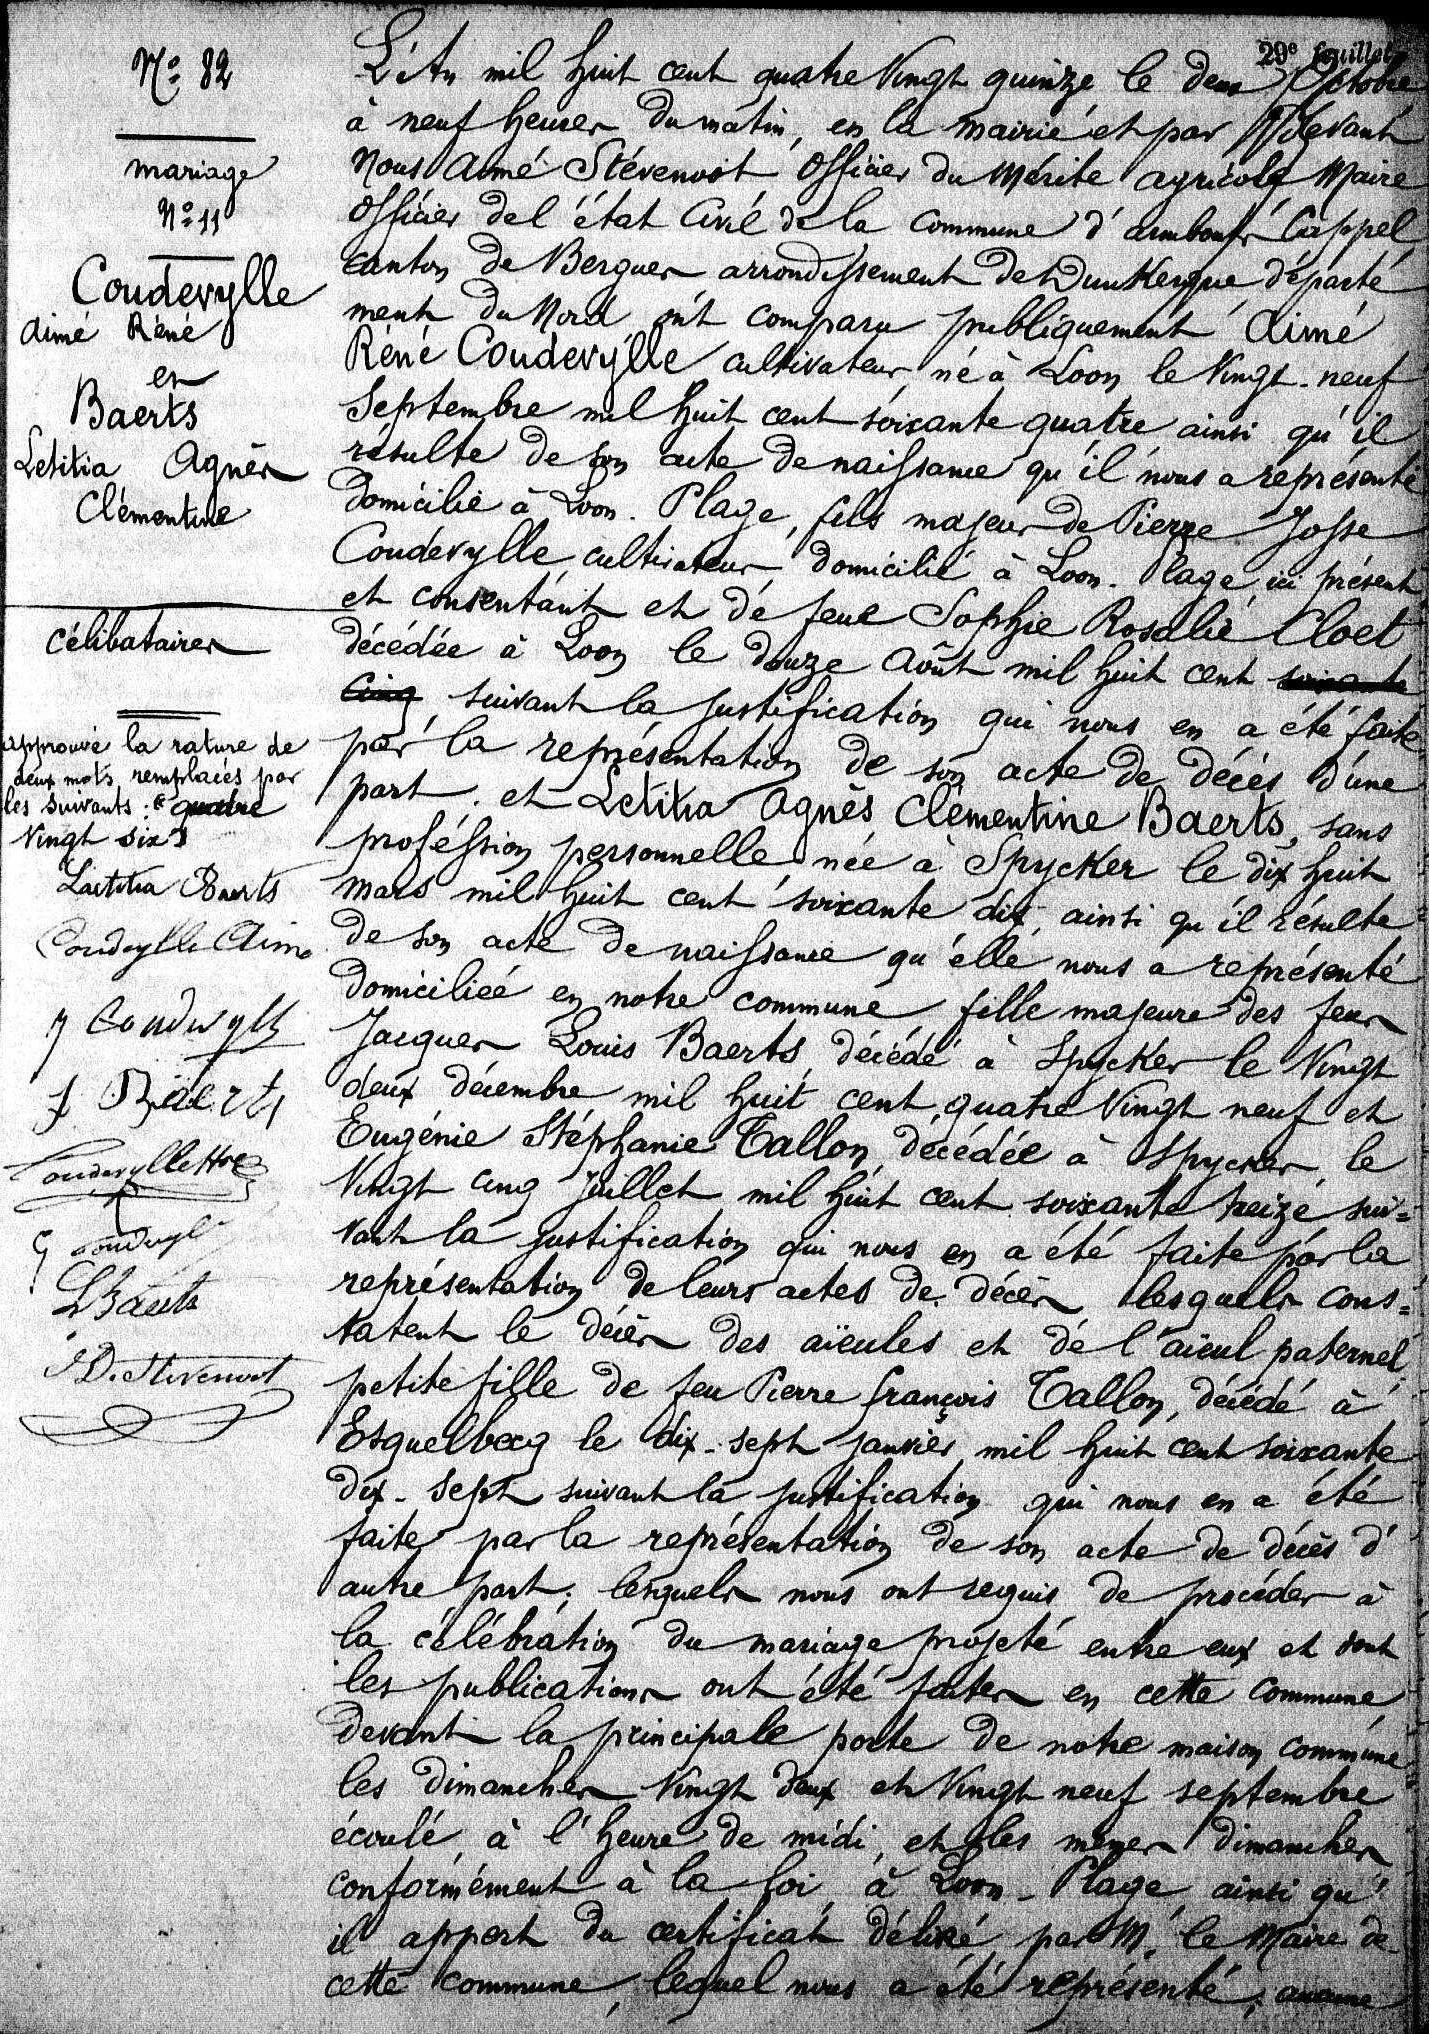 29e feuillet
N° 82
mariage
N° 11
Coudevylle
Aimé Réné
et
Baerts
Letitia Agnès
Clémentine
célibataires
approuvé la rature de
deux mots remplacés par
les suivants : " quatre
Vingt six "
Laetitia Baerts
Coudevylle Aimé
J Coudevylle
J Baerts
Coudevylle Hre
G Coudevyl
L Baerts
D. Stevenoot
L'An mil huit cent quatre Vingt quinze le deux Octobre
à neuf heures du matin, en la mairie et par devant
Nous Aimé Stévenoot Officier du Mérite agricole, Maire
Officier de l'état Civil de la commune d'Armbouts Cappel
canton de Bergues arrondissement de Dunkerque départe
ment du Nord ont comparu publiquement Aimé
Réné Coudevylle cultivateur, né à Loon le Vingt-neuf
Septembre mil huit cent soixante quatre ainsi qu'il
résulte de son acte de naissance qu'il nous a représenté
domicilié à Loon-Plage, fils majeur de Pierre Josse
Coudevylle cultivateur, domicilié à Loon-Plage, ici présent
et consentant et de feue Sophie Rosalie Cloet
décédée à Loon le douze Août mil huit cent soixante
cinq suivant la justification qui nous en a été faite
par la représentation de son acte de décès d'une
part. et Letitia Agnès Clémentine Baerts, sans
profession personnelle, née à Spycker le dix huit
mars mil huit cent soixante dix, ainsi qu'il résulte
de son acte de naissance qu'elle nous a représenté
domiciliée en notre commune fille majeure des feux
Jacques Louis Baerts, décédé à Spycker le Vingt
deux décembre mil huit cent quatre Vingt neuf et
Eugénie Stéphanie Tallon, décédée à Spycker le
Vingt cinq Juillet mil huit cent soixante treize sui=
vant la justification qui nous en a été faite par la
représentation de leurs actes de décès lesquels cons=
tatent le décès des aïeules et de l'aïeul paternel,
petite fille de feu Pierre françois Tallon, décédé à
Esquelbecq le dix-sept janvier mil huit cent soixante
dix-sept suivant la justification qui nous en a été
faite par la représentation de son acte de décès d'
autre part; lesquels nous ont requis de procéder à
la célébration du mariage projeté entre eux et dont
les publications ont été faites en cette commune
devant la principale porte de notre maison commune
les dimanches Vingt deux et Vingt neuf septembre
écoulé, à l'heure de midi, et les mêmes dimanches
conformément à la loi à Loon-Plage ainsi qu'
il appert du certificat délivré par M. le Maire de
cette commune, lequel nous a été représenté; aucune